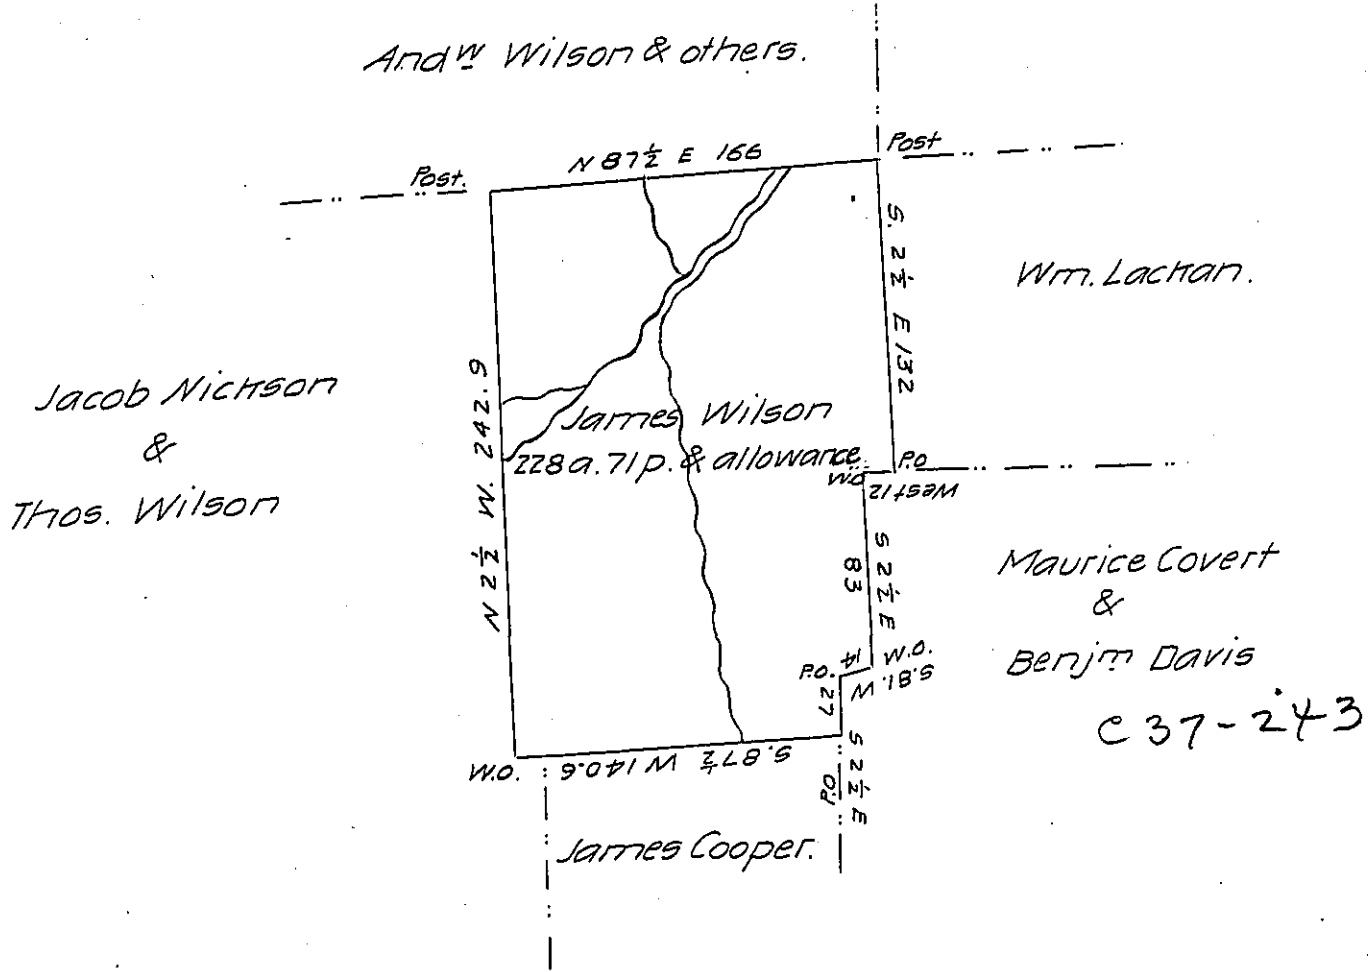 Andw Wilson & others.
Post
N 87½ E 166
Post.
S. 2½ E 132
Wm. Lackan.
Jacob Nickson
&
Thos. Wilson
N 2½ W. 242.9
James Wilson
228 a. 71 p. & allowance
W.O
P.O
West 12
S 2½ E
83
Maurice Covert
&
Benjm Davis
W.O.
14
S. 81. W
P.O.
27
C 37-243
S 2½ E
P.O
S. 87½ W 140.6
W.O.
James Cooper.